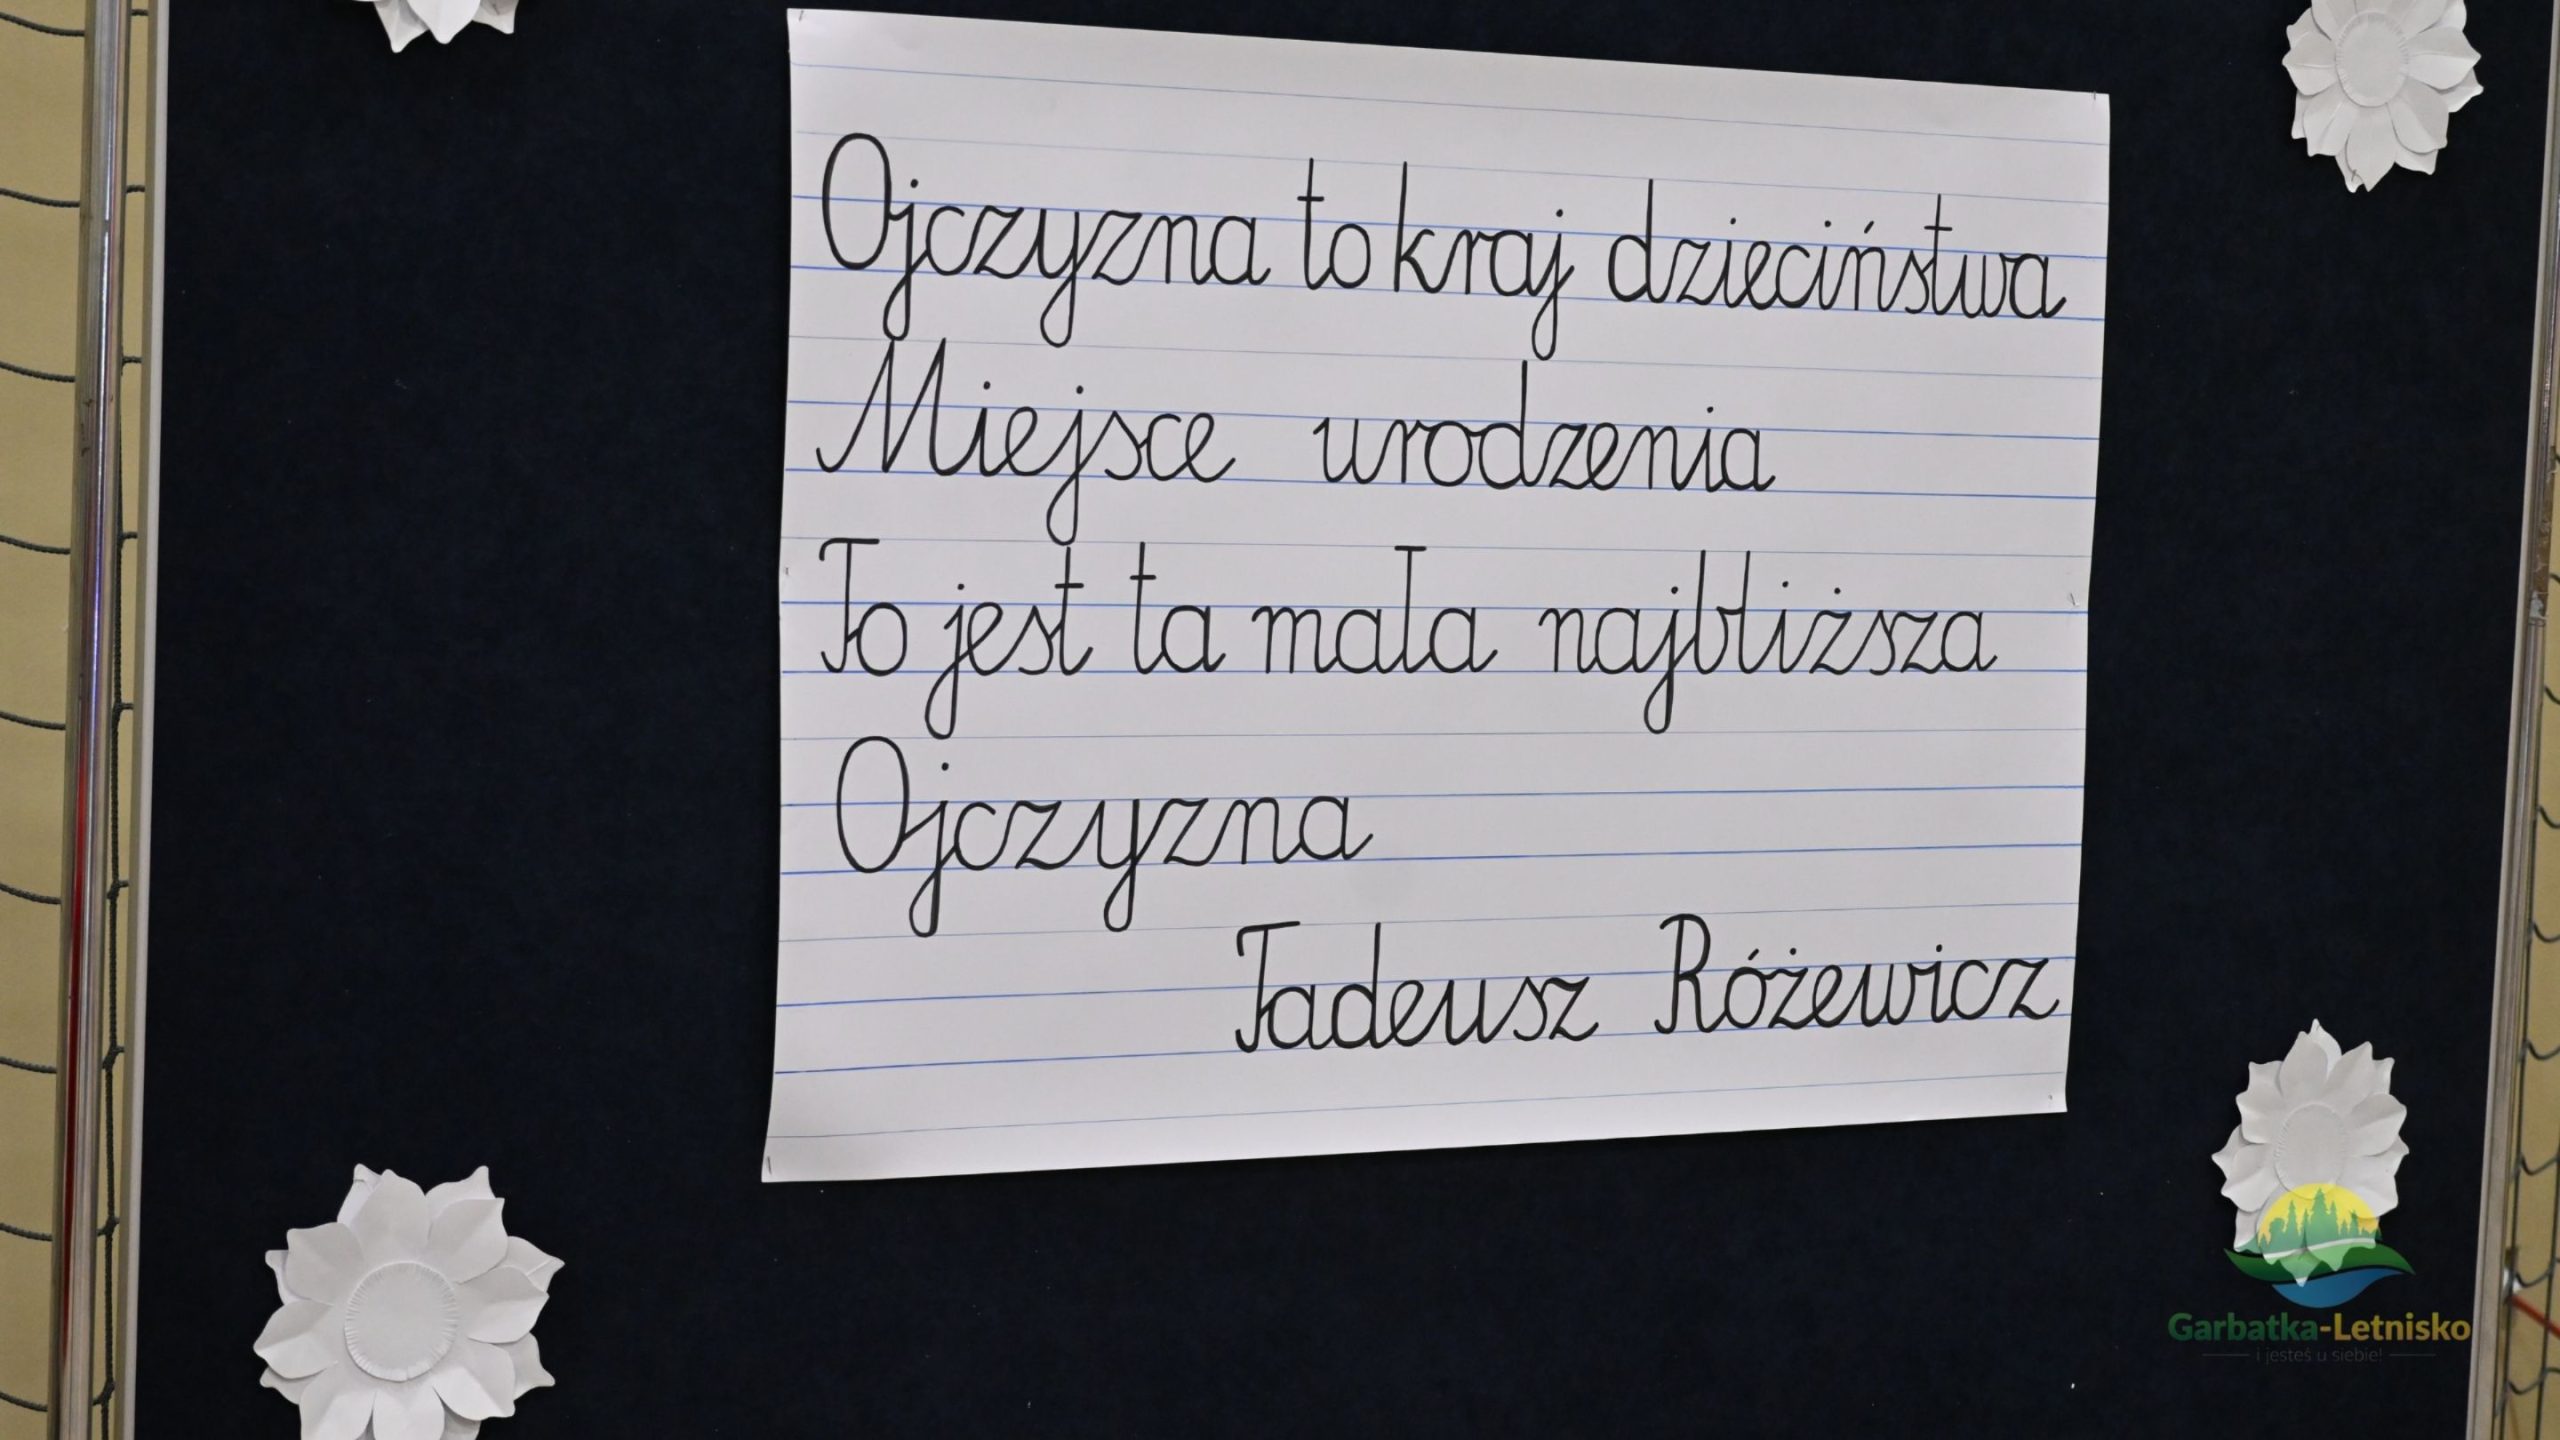 Ojczyzna to kraj dzieciństwa
Miejsce urodzenia
To jest ta mała najbliższa
Ojczyzna
Tadeusz Różewicz
Garbatka-Letnisko
i jesteś u siebie!